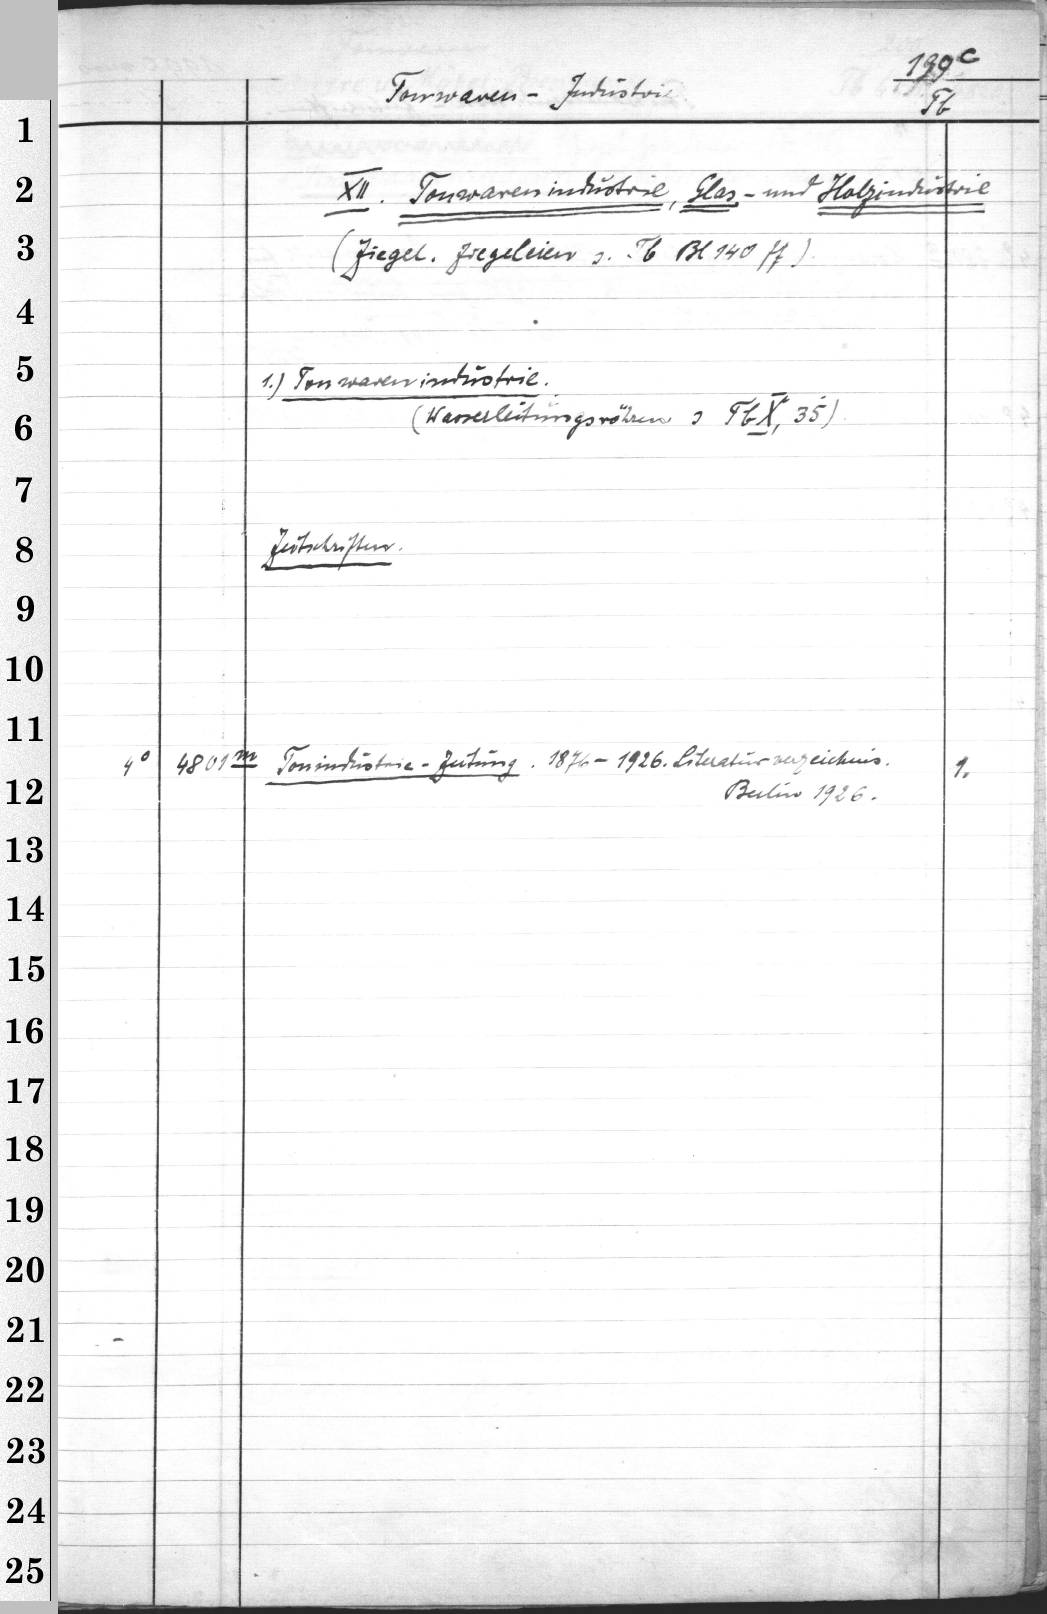 199c
Tonwaren - Industrie.
Tb
XII. Tonwarenindustrie, Glas- und Holzindustrie
(Ziegel. Ziegeleien s. Tb Bl 140 ff)
1.) Tonwarenindustrie.
(Wasserleitungsröhren s Tb X, 35)
Zeitschriften.
4° 4801m Tonindustrie-Zeitung. 1876-1926. Literaturverzeichnis. 1.
Berlin 1926.
1
2
3
4
5
6
7
8
9
10
11
12
13
14
15
16
17
18
19
20
21
22
23
24
25